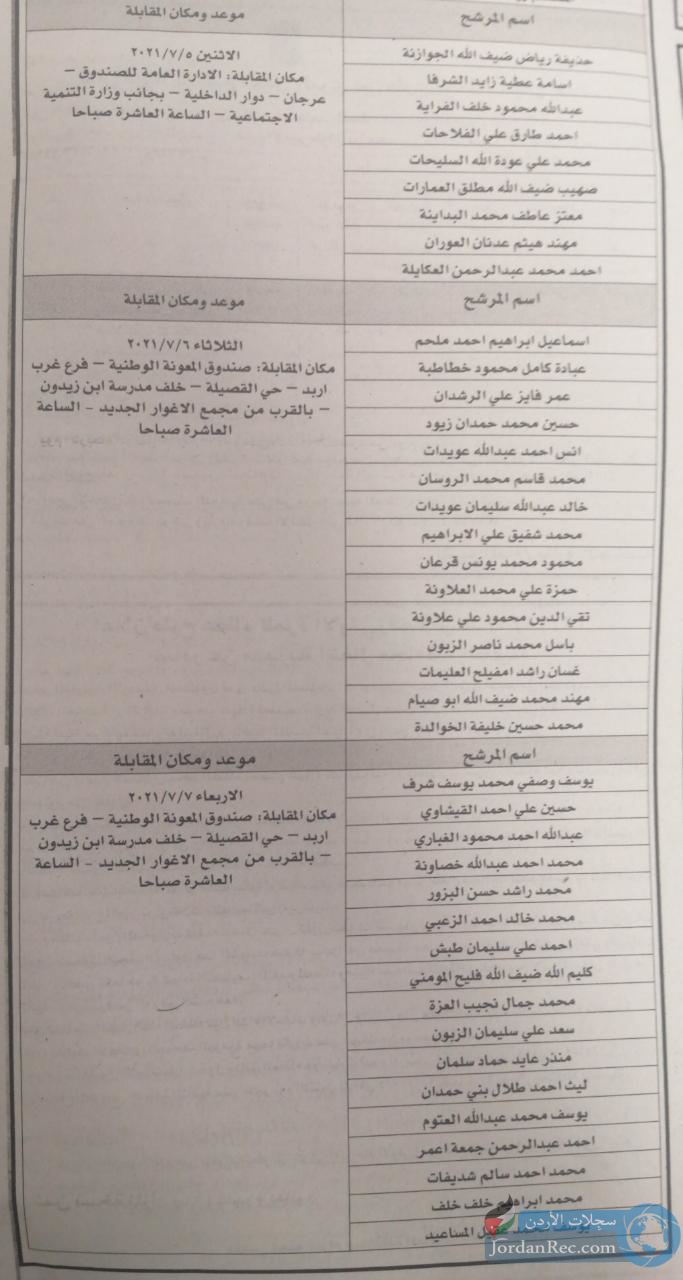 اسم المرشح
موعد ومكان المقابلة
حذيفة رياض ضيف الله الجوازنة
اسامة عطية زايد الشرفا
عبدالله محمود خلف الفراية
احمد طارق علي الفلاحات
محمد علي عودة الله السليحات
صهيب ضيف الله مطلق العمارات
معتز عاطف محمد البداينة
مهند هيثم عدنان العوران
احمد محمد عبدالرحمن العكايلة
الاثنين ٢٠٢١/٧/٥
مكان المقابلة: الادارة العامة للصندوق –
عرجان – دوار الداخلية – بجانب وزارة التنمية
الاجتماعية – الساعة العاشرة صباحا
اسم المرشح
موعد ومكان المقابلة
اسماعيل ابراهيم احمد ملحم
عبادة كامل محمود خطاطبة
عمر فايز علي الرشدان
حسين محمد حمدان زيود
انس احمد عبدالله عويدات
محمد قاسم محمد الروسان
خالد عبدالله سليمان عويدات
محمد شفيق علي الابراهيم
محمود محمد يونس قرعان
حمزة علي محمد العلاونة
تقي الدين محمود علي علاونة
باسل محمد ناصر الزبون
غسان راشد امفيلح العليمات
مهند محمد ضيف الله ابو صيام
محمد حسين خليفة الخوالدة
الثلاثاء ٢٠٢١/٧/٦
مكان المقابلة: صندوق المعونة الوطنية – فرع غرب
اربد – حي القصيلة – خلف مدرسة ابن زيدون
– بالقرب من مجمع الاغوار الجديد - الساعة
العاشرة صباحا
اسم المرشح
موعد ومكان المقابلة
يوسف وصفي محمد يوسف شرف
حسين علي احمد القيشاوي
عبدالله احمد محمود الغباري
محمد احمد عبدالله خصاونة
محمد راشد حسن البزور
محمد خالد احمد الزعبي
احمد علي سليمان طبش
كليم الله ضيف الله فليح المومني
محمد جمال نجيب العزة
سعد علي سليمان الزبون
منذر عايد حماد سلمان
ليث احمد طلال بني حمدان
يوسف محمد عبدالله العتوم
احمد عبدالرحمن جمعة اعمر
محمد احمد سالم شديفات
محمد ابراهيم خلف خلف
يوسف محمد عقيل المساعيد
الاربعاء ٢٠٢١/٧/٧
مكان المقابلة: صندوق المعونة الوطنية – فرع غرب
اربد – حي القصيلة – خلف مدرسة ابن زيدون
– بالقرب من مجمع الاغوار الجديد - الساعة
العاشرة صباحا
سجلات الأردن
JordanRec.com